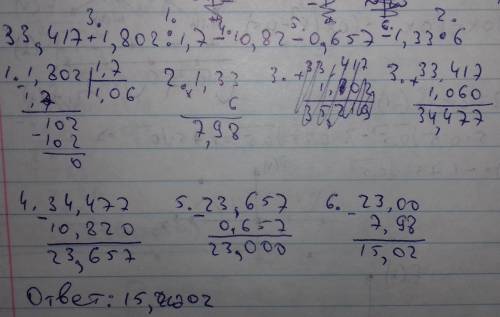 3. 1. 4. 5. 6. 2.
33,417+1,802:1,7-10,82-0,657-1,33·6
1. 1,802 | 1,7 2. 1,33 3. +33,417 3. +33,417
1,7 1,06 × 6 1,802 1,060
-102 7,98 35,219 34,477
-102
0
4. -34,477 5. -23,657 6. -23,00
10,820 0,657 7,98
23,657 23,000 15,02
Ответ: 15,02